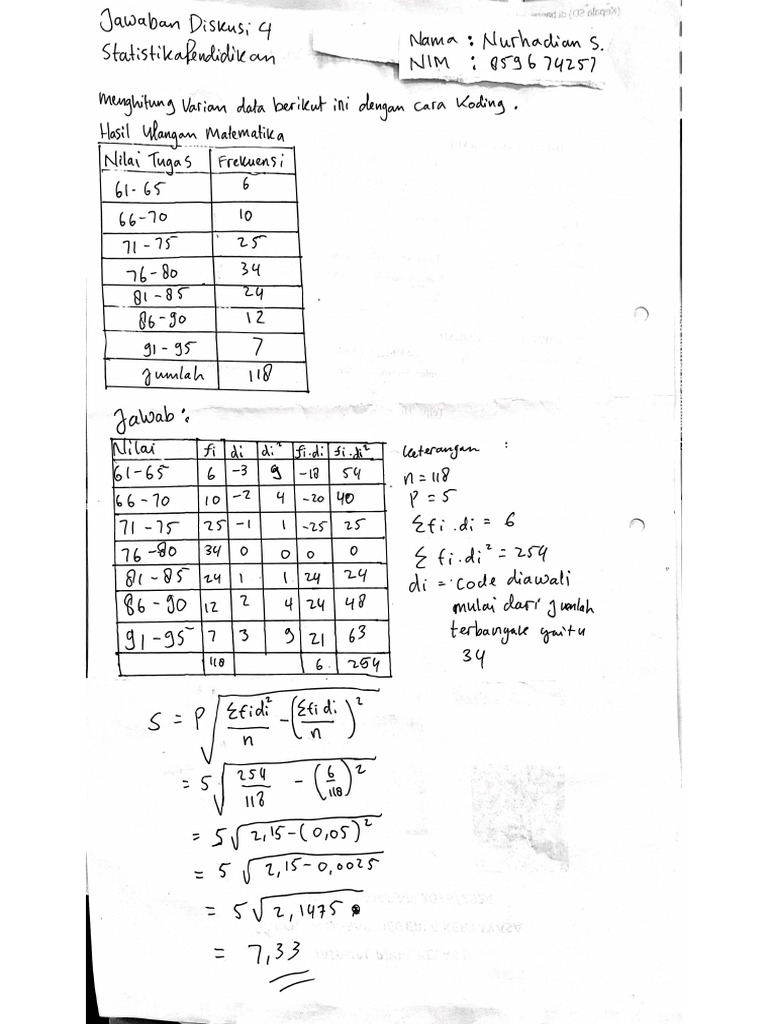 Jawaban Diskusi 4
Statistika Pendidikan
Nama : Nurhadian S.
NIM : 859674257
Menghitung Varian data berikut ini dengan cara Koding.
Hasil Ulangan Matematika
Nilai Tugas Frekuensi
61-65 6
66-70 10
71-75 25
76-80 34
81-85 24
86-90 12
91-95 7
Jumlah 118
Jawab :
Nilai fi di di² fi.di fi.di²
61-65 6 -3 9 -18 54
66-70 10 -2 4 -20 40
71-75 25 -1 1 -25 25
76-80 34 0 0 0 0
81-85 24 1 1 24 24
86-90 12 2 4 24 48
91-95 7 3 9 21 63
118 6. 254
Keterangan :
n = 118
P = 5
Σfi.di = 6
Σ fi.di² = 254
di = Code diawali
mulai dari jumlah
terbanyak yaitu
34
S = P √(Σfidi²/n - (Σfidi/n)²)
= 5 √(254/118 - (6/118)²)
= 5 √(2,15-(0,05)²)
= 5 √(2,15-0,0025)
= 5 √(2,1475)
= 7,33